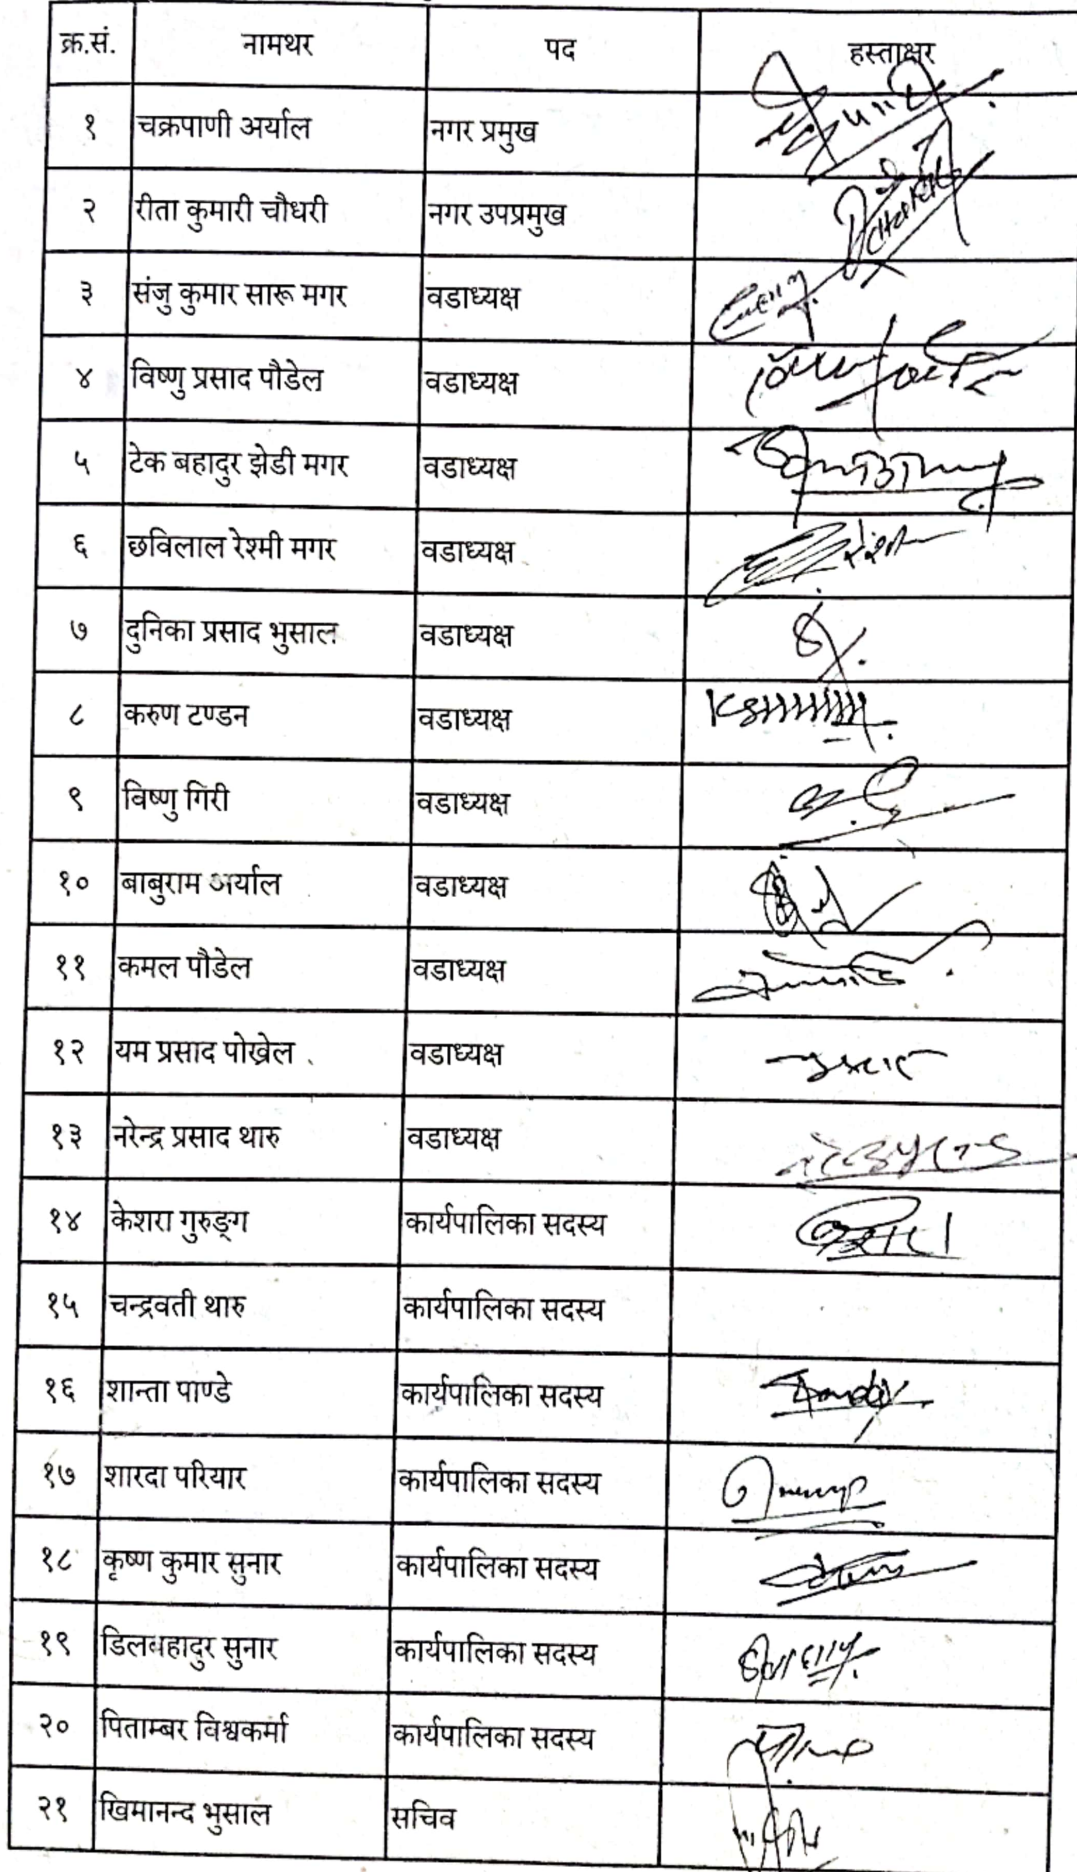 क्र.सं. नामथर पद हस्ताक्षर
१ चक्रपाणी अर्याल नगर प्रमुख
२ रीता कुमारी चौधरी नगर उपप्रमुख
३ संजु कुमार सारू मगर वडाध्यक्ष
४ विष्णु प्रसाद पौडेल वडाध्यक्ष
५ टेक बहादुर झेडी मगर वडाध्यक्ष
६ छविलाल रेश्मी मगर वडाध्यक्ष
७ दुनिका प्रसाद भुसाल वडाध्यक्ष
८ करुण टण्डन वडाध्यक्ष
९ विष्णु गिरी वडाध्यक्ष
१० बाबुराम अर्याल वडाध्यक्ष
११ कमल पौडेल वडाध्यक्ष
१२ यम प्रसाद पोख्रेल वडाध्यक्ष
१३ नरेन्द्र प्रसाद थारु वडाध्यक्ष
१४ केशरा गुरुङ्ग कार्यपालिका सदस्य
१५ चन्द्रवती थारु कार्यपालिका सदस्य
१६ शान्ता पाण्डे कार्यपालिका सदस्य
१७ शारदा परियार कार्यपालिका सदस्य
१८ कृष्ण कुमार सुनार कार्यपालिका सदस्य
१९ डिलबहादुर सुनार कार्यपालिका सदस्य
२० पिताम्बर विश्वकर्मा कार्यपालिका सदस्य
२१ खिमानन्द भुसाल सचिव